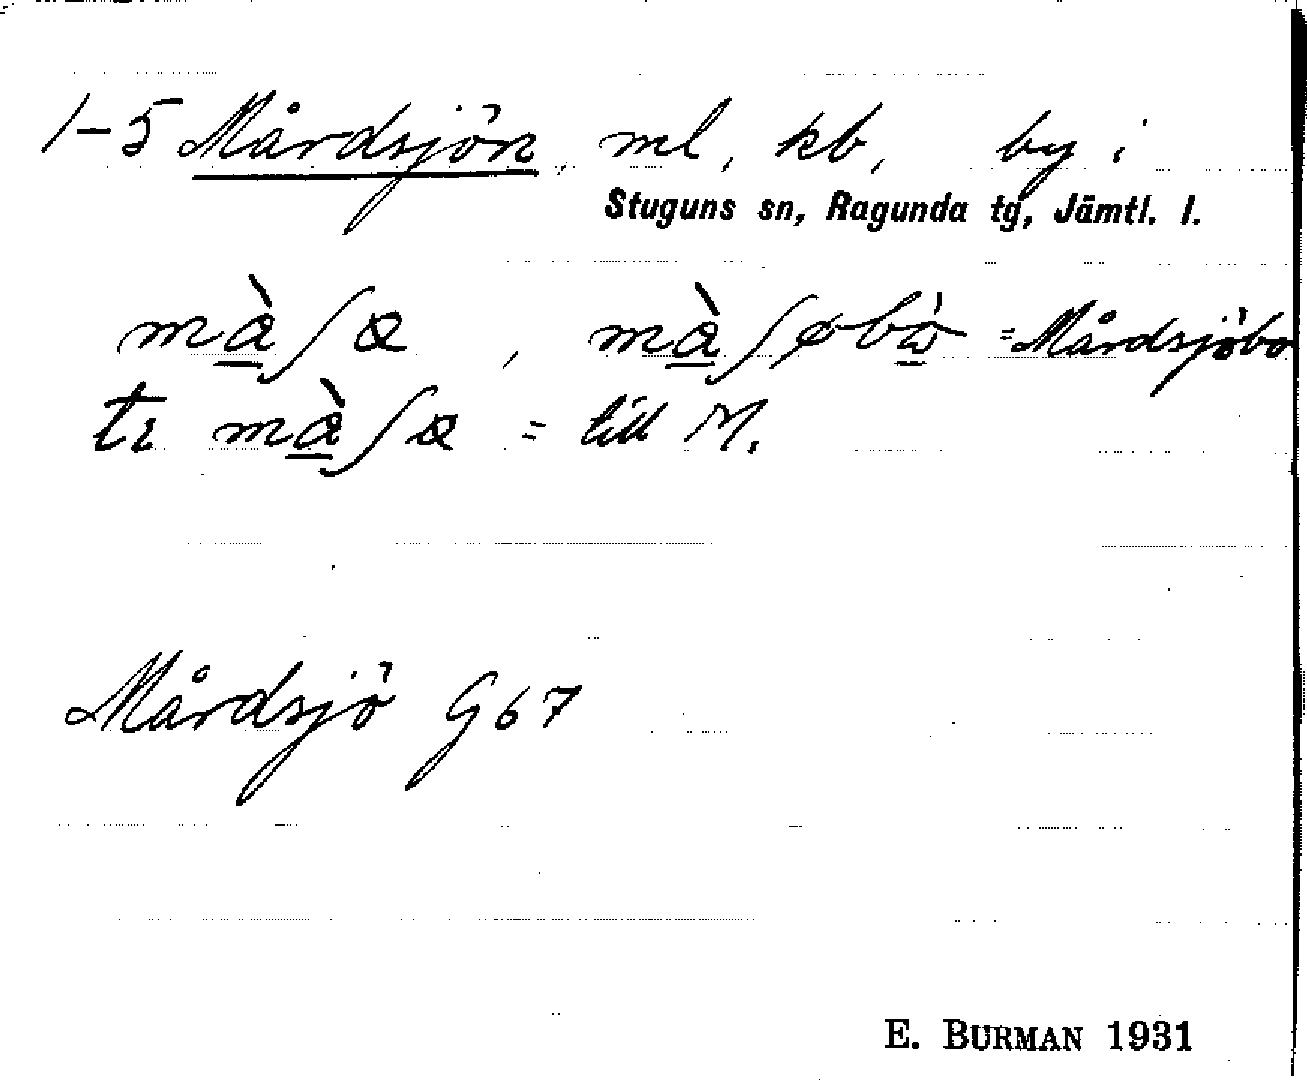 1-5 Mårdsjön, ml, kb, by i
Stuguns sn, Ragunda tg, Jämtl. l.
= Mårdsjöbo
= till M.
Mårdsjö G67
E. BURMAN 1931